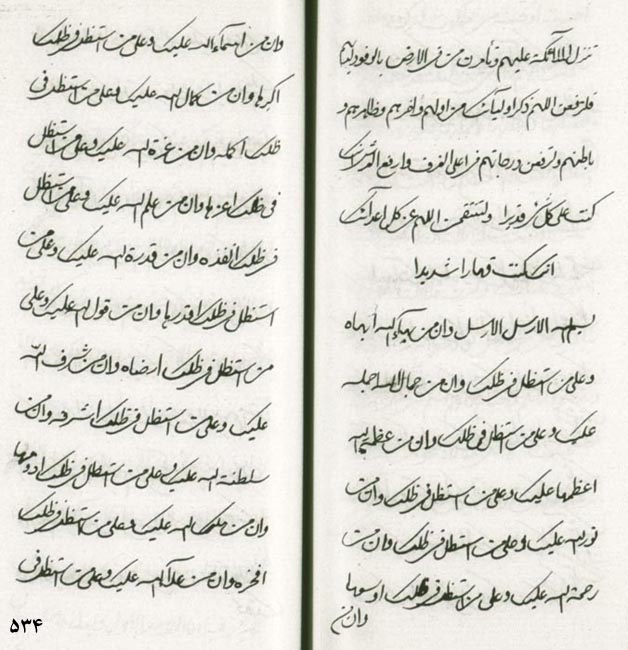 تنزل الملائكة عليهم وتأمرن من في الارض بالوفود اليها
فلترفعن اللهم ذكر اوليائك من اولهم واخرهم وظاهرهم و
باطنهم ولترفعن درجاتهم في اعلى الغرف وارفع الدرجات انك
كنت على كل شئ قديرا ولتنتقمن اللهم عن كل اعدائك
انك كنت قهارا شديدا
بسم الله الارسل الارسل وان من بهاء الله ابهاه
وعلى من استظل في ظلك وان من جلال الله اجله
عليك وعلى من استظل في ظلك وان من عظمة الله
اعظمها عليك وعلى من استظل في ظلك وان من
نور الله عليك وعلى من استظل في ظلك وان من
رحمة الله عليك وعلى من استظل في ظلك اوسعها
وان من
وان من اسماء الله عليك وعلى من استظل في ظلك
اكبرها وان من كمال الله عليك وعلى من استظل في
ظلك اكمله وان من عزة الله عليك وعلى من استظل
في ظلك اعزها وان من علم الله عليك وعلى من استظل
في ظلك انفذه وان من قدرة الله عليك وعلى من
استظل في ظلك اقدرها وان من قول الله عليك وعلى
من استظل في ظلك ارضاه وان من شرف الله
عليك وعلى من استظل في ظلك اشرفه وان من
سلطنة الله عليك وعلى من استظل في ظلك ادومها
وان من ملك الله عليك وعلى من استظل في ظلك
افخره وان من علاء الله عليك وعلى من استظل في
۵۳۴